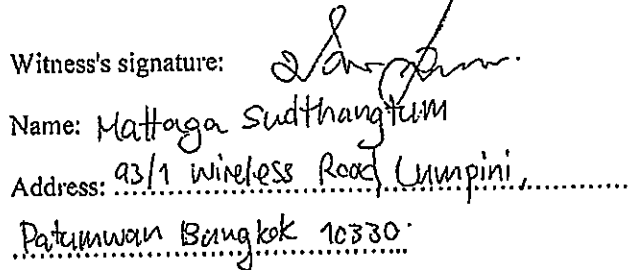 Witness's signature:
Name: Mattaga Sudthangtum
Address: 93/1 Wireless Road Lumpini,
Patumwan Bangkok 10330.